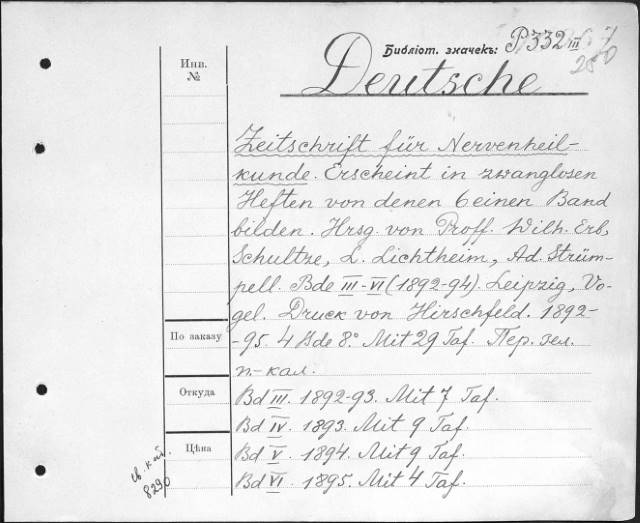 Библіот. значекъ: P332III
250
Инв.
№
Deutsche
Zeitschrift für Nervenheil-
kunde. Erscheint in zwanglosen
Heften von denen 6 einen Band
bilden. Hrsg. von Proff. Wilh. Erb,
Schultze, L. Lichtheim, Ad. Strüm-
pell. Bde III-VI (1892-94). Leipzig, Vo-
gel. Druck von Hirschfeld. 1892-
-95. 4 Bde 8°. Mit 29 Taf. Пер. зел.
п.-кал.
По заказу
Откуда
Bd III. 1892-93. Mit 7 Taf.
Bd IV. 1893. Mit 9 Taf.
Цѣна
Bd V. 1894. Mit 9 Taf.
Bd VI. 1895. Mit 4 Taf.
8290